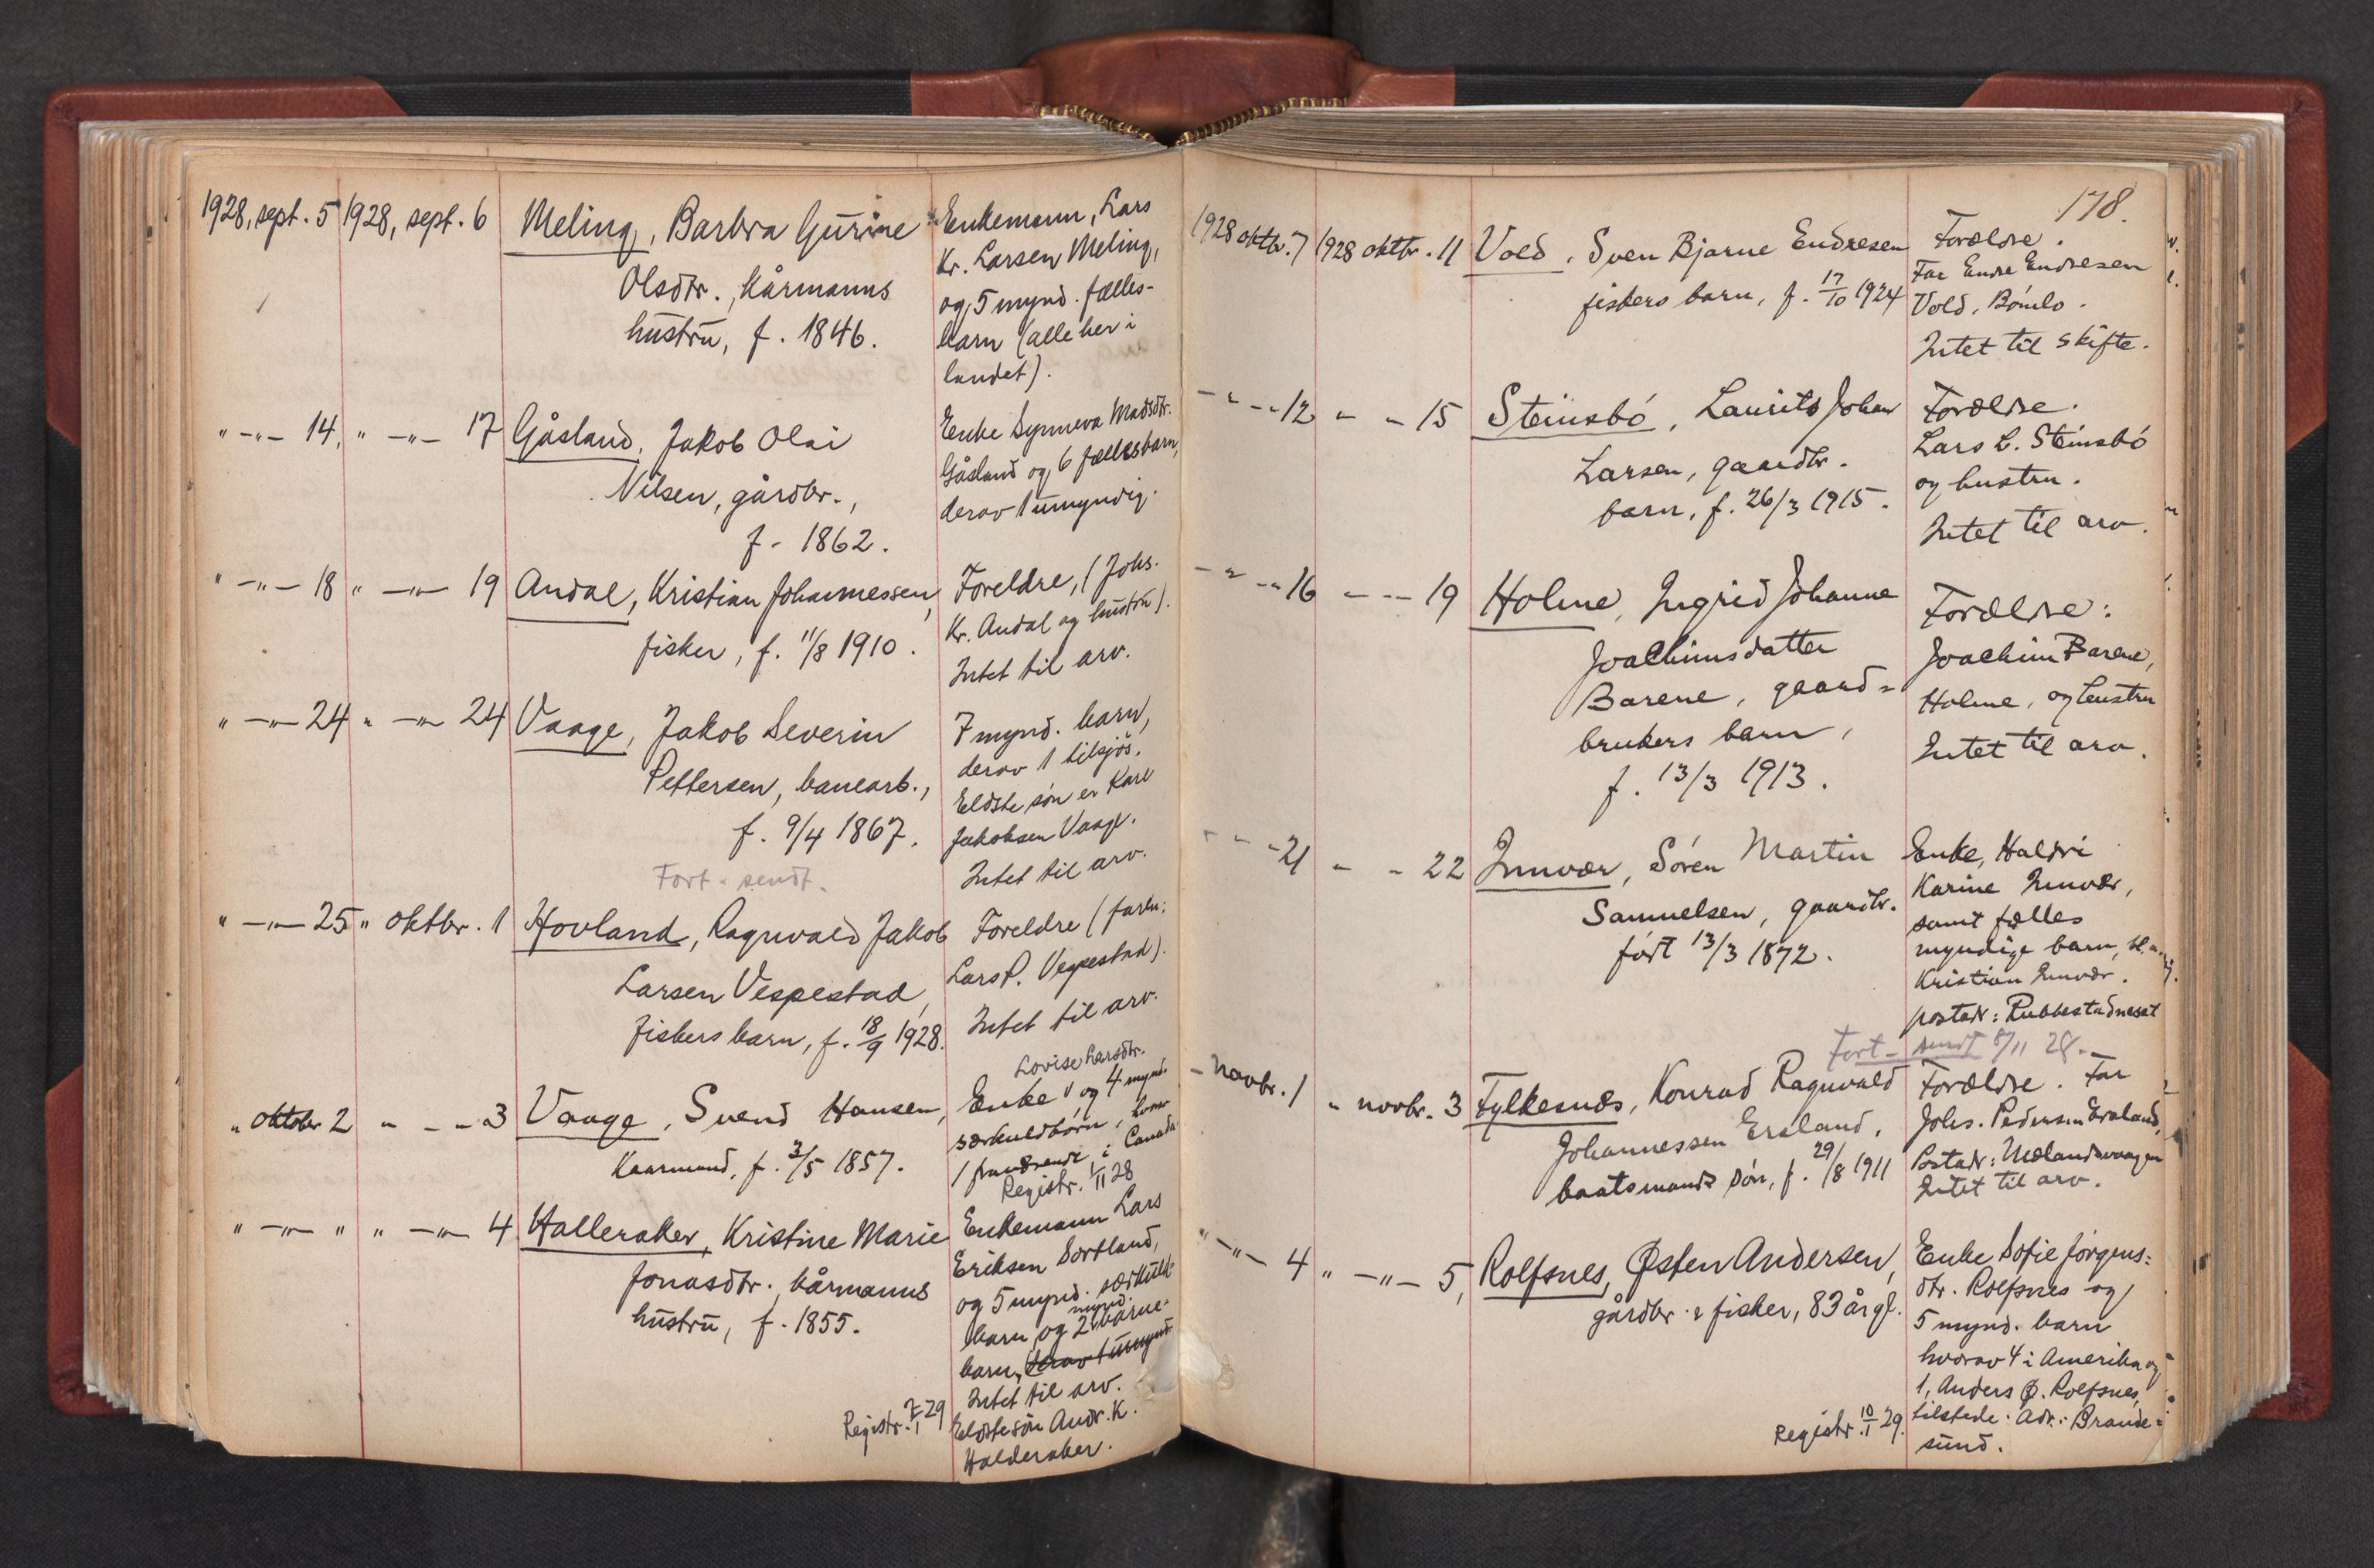 1928, sept. 5 1928, sept. 6 Meling, Barbra Gurine Enkemann, Lars
Olsdtr., kårmanns Kr. Larsen Meling,
hustru, f. 1846. og 5 mynd. fælles-
barn (alle her i
landet).
" -"- 14, " -"- 17 Gåsland, Jakob Olai Enke Synneva Madsdtr.
Nilsen, gårdbr., Gåsland og 6 fællesbarn,
f. 1862. derav 1 umyndig.
" -"- 18 " -"- 19 Andal, Kristian Johannessen, Foreldre, (Johs.
fisker, f. 11/8 1910. Kr. Andal og hustru).
Intet til arv.
" -"- 24 " -"- 24 Vaage, Jakob Severin 7 mynd. barn,
Pettersen, banearb., derav 1 tilsjøs.
f. 9/4 1867. Eldste søn er Karl
Jakobsen Vaage.
Fort. sendt. Intet til arv.
" -"- 25 " oktbr. 1 Hovland, Ragnvald Jakob Foreldre (faren:
Larsen Vespestad, Lars P. Vespestad).
fiskers barn, f. 18/9 1928. Intet til arv.
Lovise Larsdtr.
" oktober 2 " - - 3 Vaage, Svend Hansen, Enke og 4 mynd.
Kaarmand, f. 3/5 1857. særkuldbørn,
1 fraværende i Canada
Registr. 1/11 28
" -"- " " -"- 4 Halleraker, Kristine Marie Enkemann Lars
Jonasdtr. kårmanns Eriksen Sortland,
hustru, f. 1855. og 5 mynd. særkuld-
barn og 2 mynd. barne-
barn, derav 1 umynd.
Intet til arv.
Registr. 7/1 29 Eldste søn Andr. K.
Halderaker.
178.
1928 oktbr. 7 1928 oktbr. 11 Vold, Sven Bjarne Endresen Forældre.
fiskers barn, f. 17/10 1924 Far Endre Endresen
Vold, Bömlo.
Intet til skifte.
- " - - 12 - - 15 Steinsbó, Laurits Johan Forældre.
Larsen, gaardbr. Lars L. Steinsbó
barn, f. 26/3 1915. og hustru.
Intet til arv.
- " - - 16 - - - 19 Holme, Ingrid Johanne Forældre:
Joachimsdatter Joachim Barene,
Barene, gaard- Holme, og hustru
brukers barn, Intet til arv.
f. 13/3 1913.
- - - 21 - - 22 Innvær, Sóren Martin Enke, Haldri
Samuelsen, gaardbr. Karine Innvær,
født 13/3 1872. samt fælles
myndige barn, bl. a.
Kristian Innvær.
postadr: Rubbestadneset
Fort. sendt 8/11 28.
- novbr. 1 " novbr. 3 Fylkesnes, Konrad Ragnvald Forældre. Far
Johannessen Ersland, Johs. Pedersen Ersland,
baatsmands søn, f. 29/8 1911 Postadr: Mælandsvaagen
Intet til arv.
" -"- 4 " -"- 5, Rolfsnes, Østen Andersen, Enke Sofie Jörgens-
gårdbr. & fisker, 83 år gl. dtr. Rolfsnes og
5 mynd. barn
hvorav 4 i Amerika og
1, Anders Ø. Rolfsnes,
Registr. 10/1 29. tilstede. Adr.: Brande-
sund.